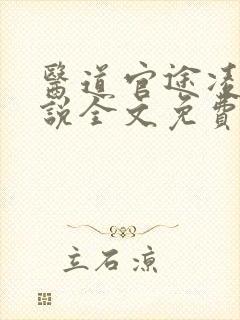 醫道官途凌
說全文免費
立石涼